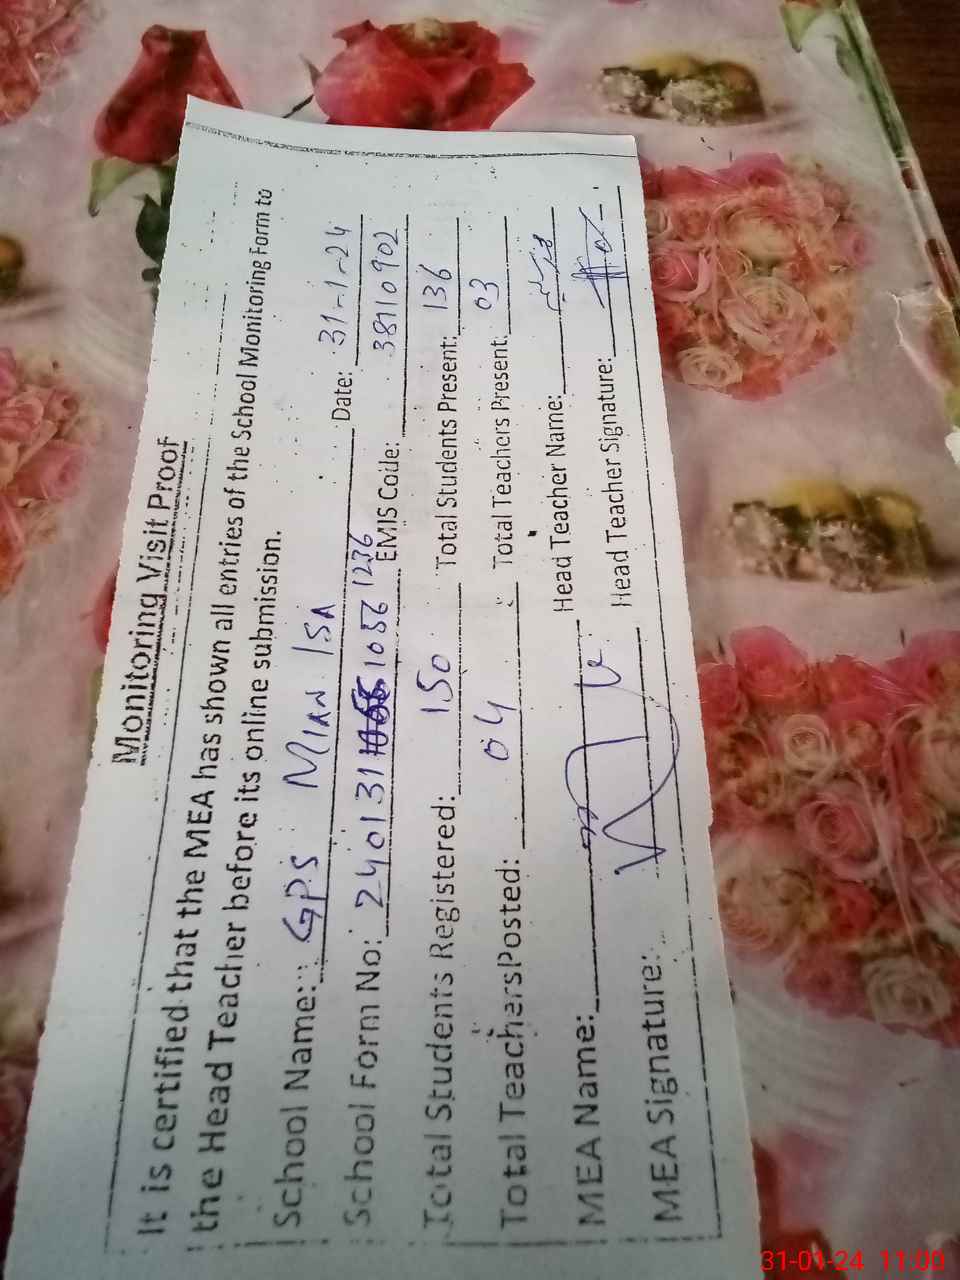 Monitoring Visit Proof
It is certified that the MEA has shown all entries of the School Monitoring Form to
the Head Teacher before its online submission.
School Name: GPS MIAN ISA Date: 31-1-24
School Form No: 240131 1056 1236 EMIS Code: 38110902
Total Students Registered: 150 Total Students Present: 136
Total Teachers Posted: 04 Total Teachers Present: 03
MEA Name: Head Teacher Name:
MEA Signature: Head Teacher Signature:
31-01-24 11:00